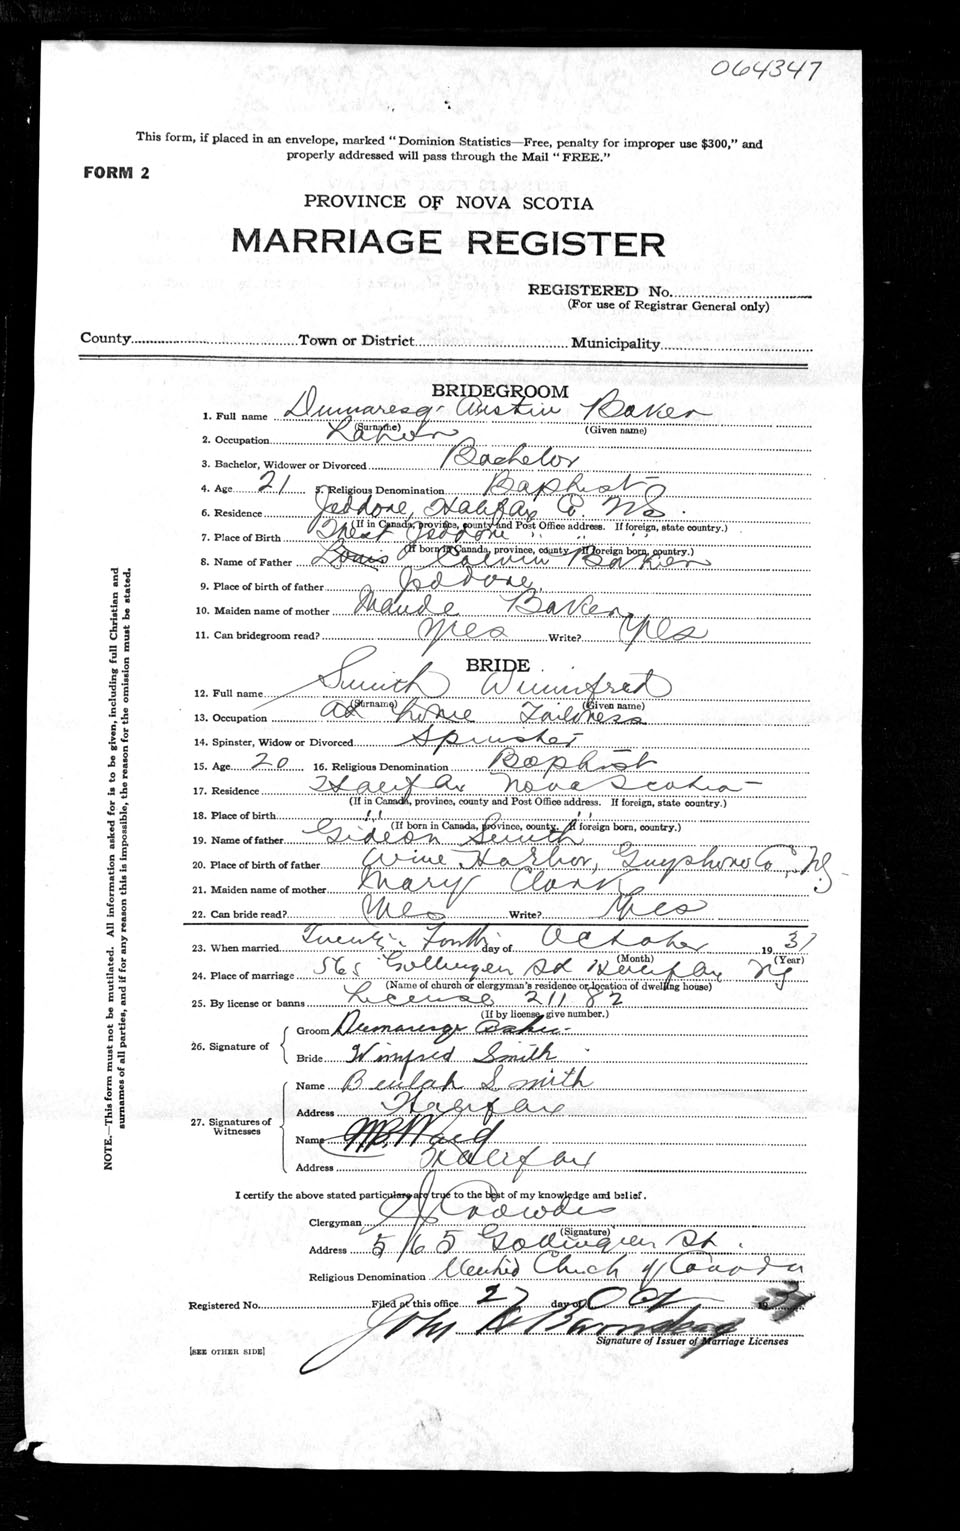 064347
This form, if placed in an envelope, marked "Dominion Statistics—Free, penalty for improper use $300," and
properly addressed will pass through the Mail "FREE."
FORM 2
PROVINCE OF NOVA SCOTIA
MARRIAGE REGISTER
REGISTERED No.
(For use of Registrar General only)
County Town or District Municipality
BRIDEGROOM
1. Full name Dumaresq Austin Baker
(Surname) (Given name)
2. Occupation Labor
3. Bachelor, Widower or Divorced Bachelor
4. Age 21 5. Religious Denomination Baptist
6. Residence Jeddore, Halifax Co. NS.
(If in Canada, province, county and Post Office address. If foreign, state country.)
7. Place of Birth West Jeddore " " "
(If born in Canada, province, county. If foreign born, country.)
8. Name of Father Louis Calvin Baker
9. Place of birth of father Jeddore
10. Maiden name of mother Maude Baker
11. Can bridegroom read? Yes Write? Yes
BRIDE
12. Full name Smith Winnifred
(Surname) (Given name)
13. Occupation at home Tailoress
14. Spinster, Widow or Divorced Spinster
15. Age 20 16. Religious Denomination Baptist
17. Residence Halifax Nova Scotia
(If in Canada, province, county and Post Office address. If foreign, state country.)
18. Place of birth " "
(If born in Canada, province, county. If foreign born, country.)
19. Name of father Gideon Smith
20. Place of birth of father Wine Harbor, Guysboro Co, NS
21. Maiden name of mother Mary Clark
22. Can bride read? Yes Write? Yes
23. When married Twenty Fourth day of October 1937
(Month) (Year)
24. Place of marriage 565 Gottingen St Halifax NS
(Name of church or clergyman's residence or location of dwelling house)
25. By license or banns License 21182
(If by license, give number.)
26. Signature of
Groom Dumaresq Baker
Bride Winifred Smith
27. Signatures of Witnesses
Name Beulah Smith
Address Halifax
Name Ward
Address Halifax
I certify the above stated particulars are true to the best of my knowledge and belief.
Clergyman
(Signature)
Address 565 Gottingen St.
Religious Denomination United Church of Canada
Registered No. Filed at this office 27 day of Oct 1937
John
Signature of Issuer of Marriage Licenses
[SEE OTHER SIDE]
NOTE.—This form must not be mutilated. All information asked for is to be given, including full Christian and
surnames of all parties, and if for any reason this is impossible, the reason for the omission must be stated.